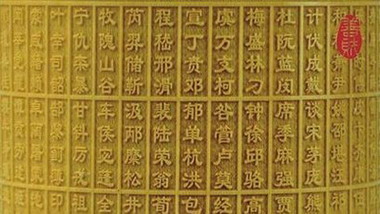 计伏成戴谈宋茅庞熊
杜阮蓝闵席季麻强贾
梅盛林刁钟徐邱骆高
虞万支柯昝管卢莫经
宣丁贲邓郁单杭洪包
程嵇邢滑裴陆荣翁荀
芮羿储靳汲邴糜松井
牧隗山谷车侯宓蓬全
宁仇栾暴甘钭厉戎祖
叶幸司韶郜黎蓟薄印